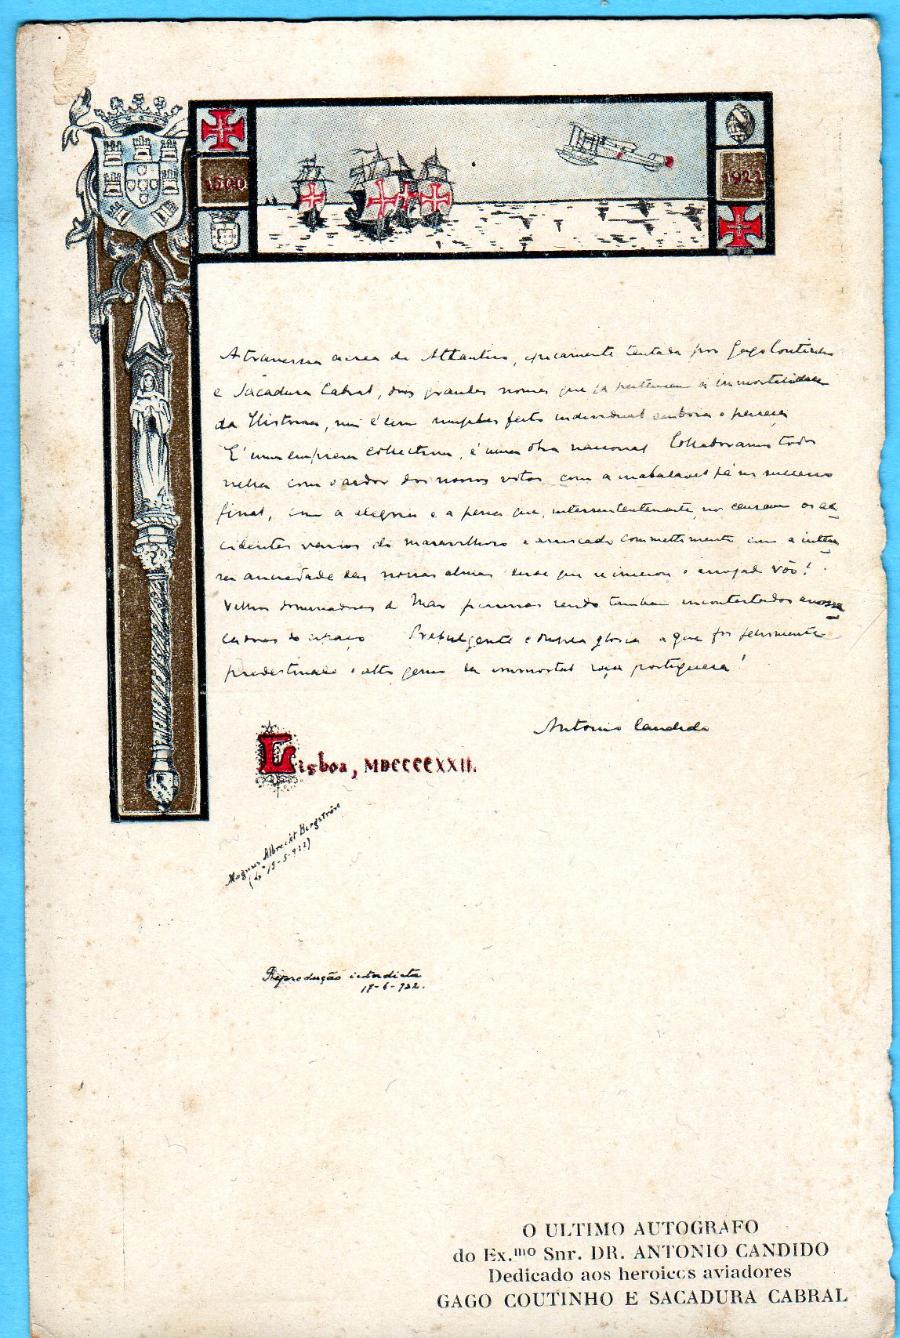 1500
1922
A travessia aerea do Atlantico, epicamente tentada por Gago Coutinho
e Sacadura Cabral, dois grandes nomes que já pertencem á immortalidade
da Historia, não é um simples feito individual embora o pareça
É uma empresa collectiva, é uma obra nacional Collaboramos todos
nella com o ardor dos nossos votos, com a inabalavel fé no successo
final, com a alegria e a pena que, intermitentemente, nos causam os ac-
cidentes varios do maravilhoso e arriscado commettimento com a
anciedade das nossas almas desde que se iniciou o arrojado vôo!
Velhos dominadores do Mar
do espaço a que foi felizmente
predestinado o alto genio da immortal raça portugueza!
Antonio Candido
Lisboa, MDCCCCXXII.
Magnus Albrecht Bergström
Reprodução interdicta
19-6-922.
O ULTIMO AUTOGRAFO
do Ex.mo Snr. DR. ANTONIO CANDIDO
Dedicado aos heroicos aviadores
GAGO COUTINHO E SACADURA CABRAL